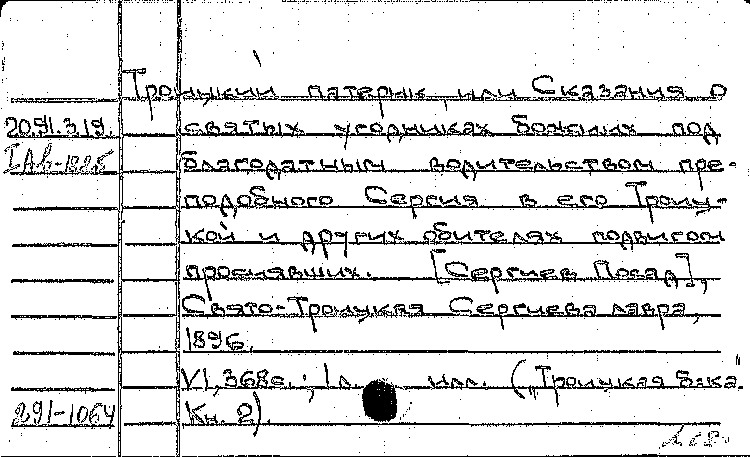 Троицкий патерик, или Сказания о
20.91.3.19. святых угодниках божиих под
благодатным водительством пре-
подобного Сергия в его Троиц-
кой и других обителях подвигом
просиявших. [Сергиев Посад],
Свято-Троицкая Сергиева лавра,
1896.
VI, 368 с.; 1 л. илл. („Троицкая б-ка".
291-1064 Кн. 2).